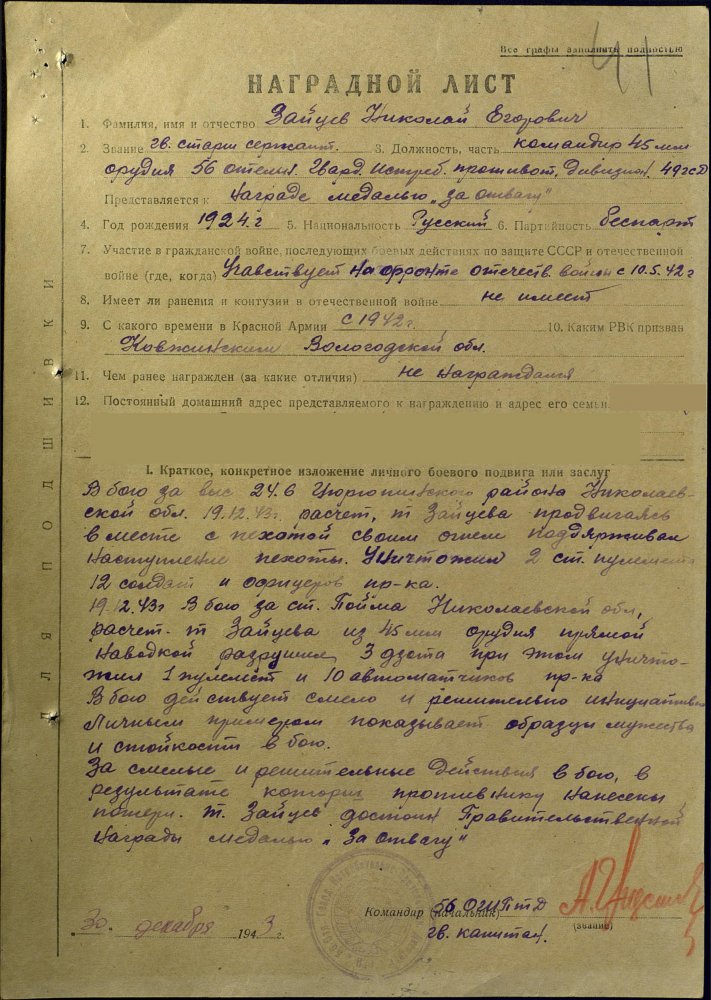 Все графы заполнить полностью
41
НАГРАДНОЙ ЛИСТ
1. Фамилия, имя и отчество Зайцев Николай Егорович
2. Звание гв. старш сержант. 3. Должность, часть командир 45 мм
орудия 56 отельн. Гвард. Истреб. противот. Дивизион. 49 гсД
Представляется к Награде медалью „за отвагу"
4. Год рождения 1924 г 5. Национальность Русский 6. Партийность Беспарт
7. Участие в гражданской войне, последующих боевых действиях по защите СССР и отечественной
войне (где, когда) Учавствует на фронте отечеств. войны с 10.5.42 г
8. Имеет ли ранения и контузии в отечественной войне не имеет
9. С какого времени в Красной Армии с 1942 г. 10. Каким РВК призван
Ковжинским Вологодской обл.
11. Чем ранее награжден (за какие отличия) не награждался
12. Постоянный домашний адрес представляемого к награждению и адрес его семьи
I. Краткое, конкретное изложение личного боевого подвига или заслуг
В бою за выс 24.6 Цюрюпинского района Николаев-
ской обл. 19.12.43г. расчет, т Зайцева продвигаясь
вместе с пехотой своим огнем поддярживал
наступление пехоты. Уничтожил 2 ст. пулемета
12 солдат и офицеров пр-ка.
19.12.43г В бою за ст. Пойма Николаевской обл,
расчет. т Зайцева из 45 мм орудия прямой
наводкой разрушил 3 дзота при этом уничто-
жил 1 пулемет и 10 автоматчиков пр-ка
В бою действует смело и решительно инициативно
Личным примером показывает образцы мужества
и стойкости в бою.
За смелые и решительные Действия в бою, в
результате которых противнику нанесены
потери. т. Зайцев достоин Правительственной
Награды медалью „За Отвагу"
Командир (начальник) 56 ОГИПтД
(звание)
гв. капитан.
30. декабря 1943 г.
ДЛЯ ПОДШИВКИ